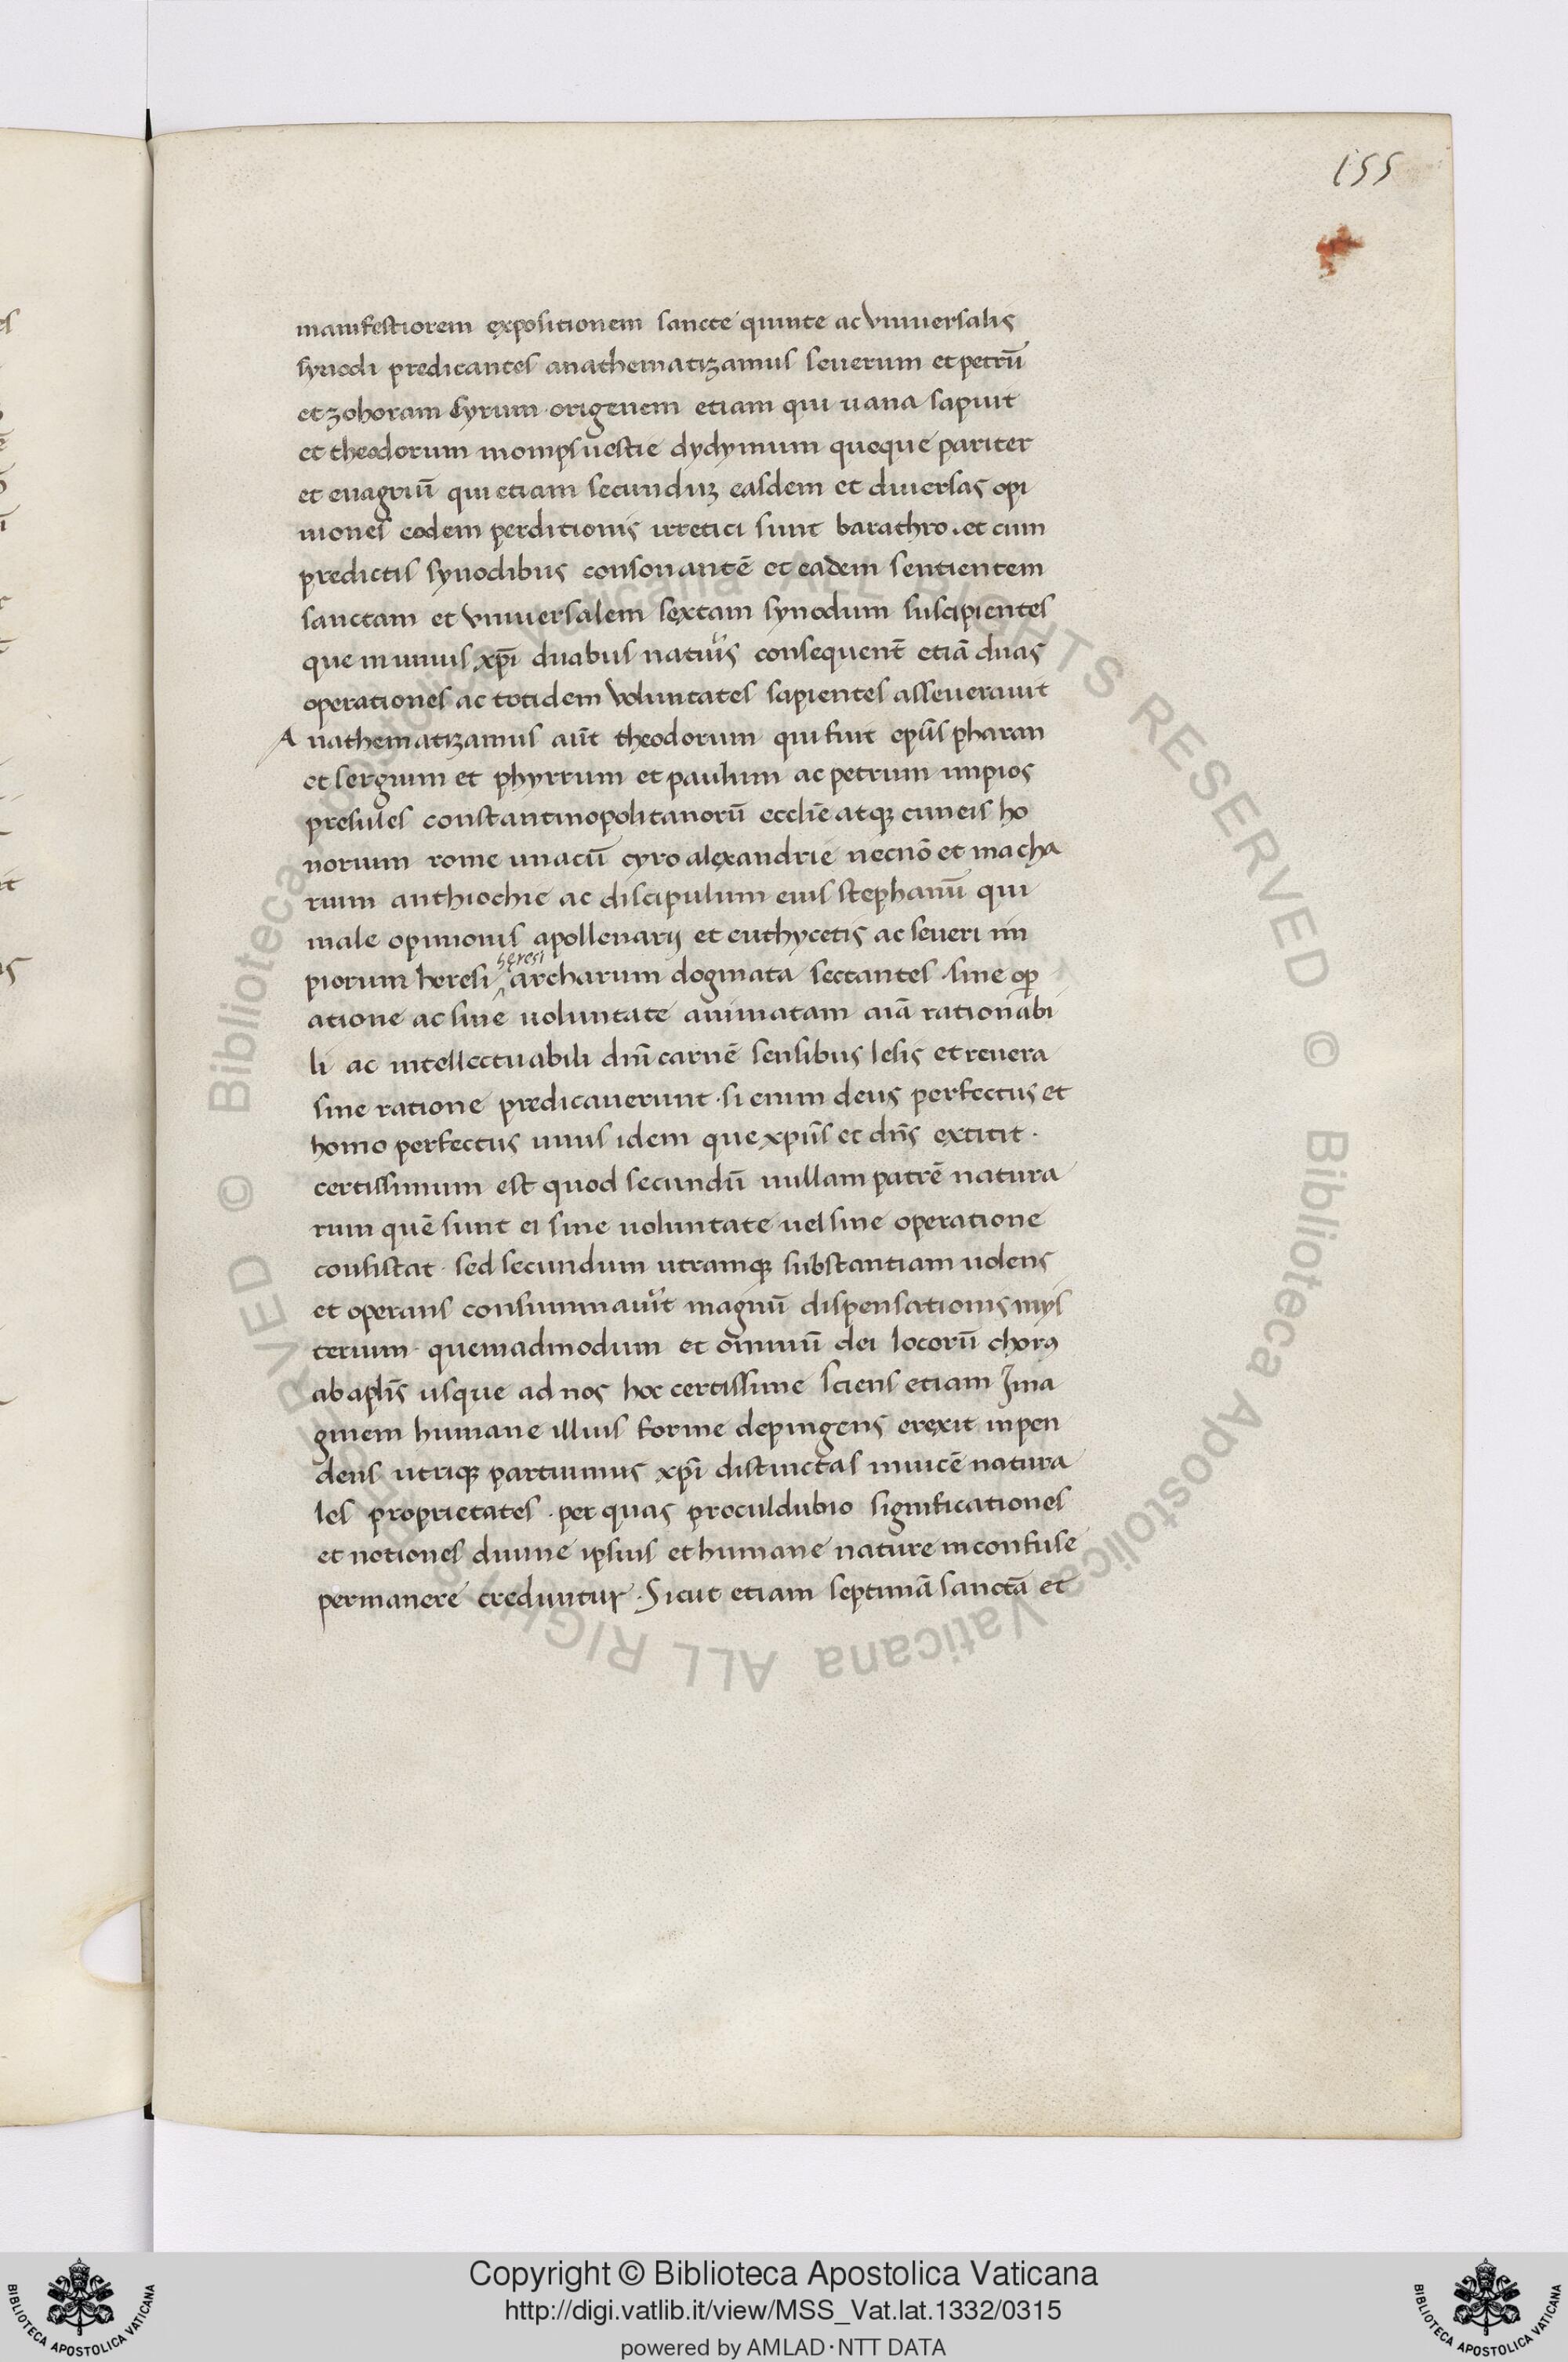 155
manifestiorem expositionem sancte quinte ac vniuersalis
synodi predicantes anathematizamus seuerum et petrū
et zohoram syrum origenem etiam qui uana sapuit
et theodorum mompsuestie dydymum queque pariter
et euagriū qui etiam secunduʒ easdem et diuersas opi
niones eodem perditionis irretici sunt barathro. et cum
predictis synodibus consonantē et eadem sentientem
sanctam et vniuersalem sextam synodum suscipientes
que in unius xp̄i duabus natur̉s consequent̄ etiā duas
operationes ac totidem voluntates sapientes asseuerauit
Anathematizamus aūt theodorum qui fuit ep̄us pharan
et sergium et phyrrum et paulum ac petrum impios
presules constantinopolitanorū eccl̄ie atqʒ cum eis ho
norium rome unacū cyro alexandrie necnō et macha
rium anthiochie ac discipulum eius stephanū qui
male opinionis apollenarij et euthycetis ac seueri im
heresi
piorum heresi archarum dogmata sectantes · sine oꝑ
atione ac sine uoluntate animatam aīā rationabi
li ac intellectuabili dn̄i carnē sensibus lesis et reuera
sine ratione predicauerunt · si enim deus perfectus et
homo perfectus unus idem que xp̄us et dn̄s extitit ·
certissimum est quod secundū nullam patrē natura
rum quē sunt ei sine uoluntate uel sine operatione
consistat · sed secundum utramqʒ substantiam uolens
et operans consummau̓it magnū dispensationis mys
terium · quemadmodum et omniū dei locorū chorꝰ
ab apl̄is usque ad nos hoc certissime sciens etiam Ima
ginem humane illius forme depingens erexit inpen
dens utriqʒ partiumus xp̄i distinctas inuicē natura
les proprietates · per quas proculdubio significationes
et notiones diuine ipsius et humane nature inconfuse
permanere creduntur · Sicut etiam septimā sanctā et
Copyright © Biblioteca Apostolica Vaticana
http://digi.vatlib.it/view/MSS_Vat.lat.1332/0315
powered by AMLAD·NTT DATA